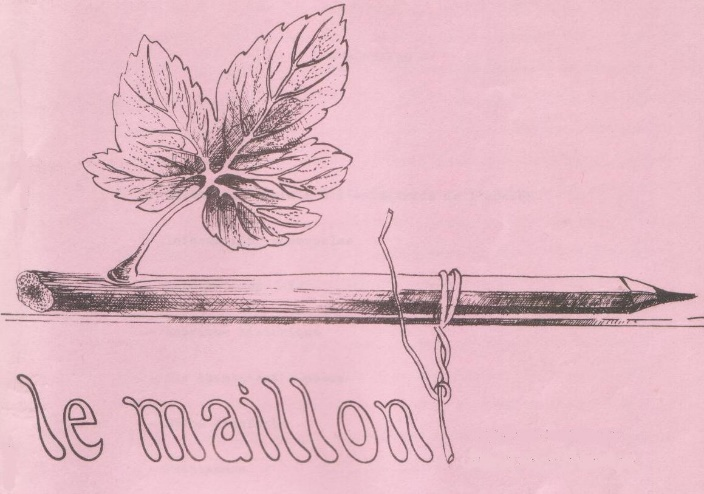 le maillon